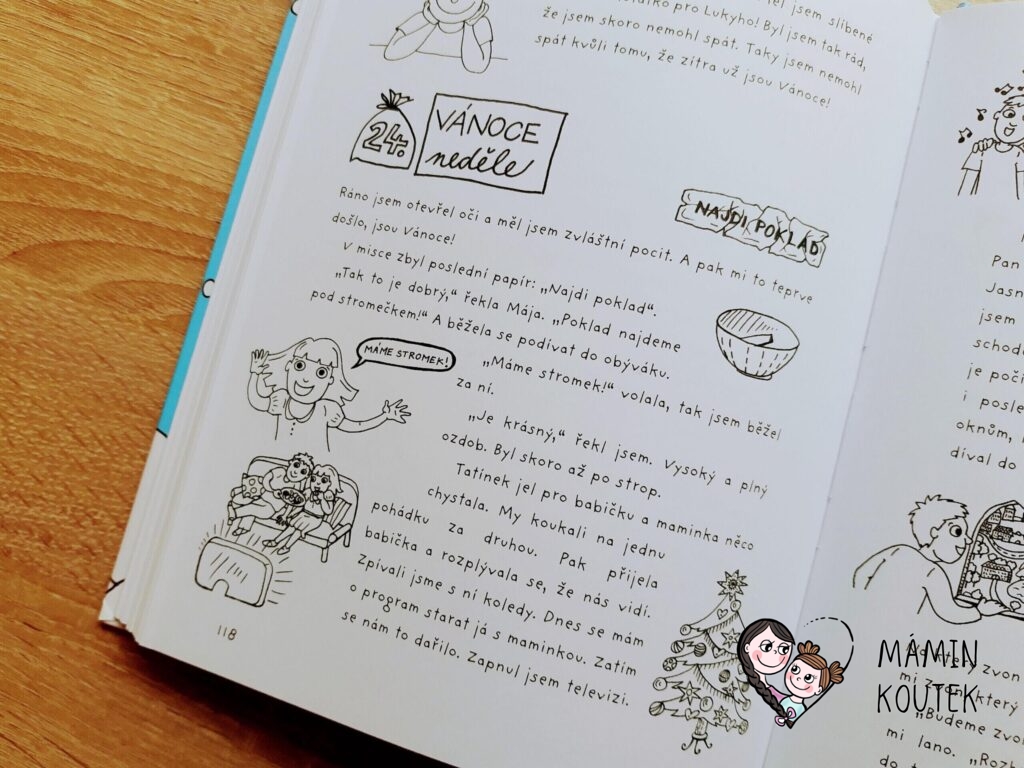 jsem slíbené
pro Lukyho! Byl jsem tak rád,
že jsem skoro nemohl spát. Taky jsem nemohl
spát kvůli tomu, že zítra už jsou Vánoce!
24.
VÁNOCE
neděle
NAJDI POKLAD
Ráno jsem otevřel oči a měl jsem zvláštní pocit. A pak mi to teprve
došlo, jsou Vánoce!
V misce zbyl poslední papír: „Najdi poklad“.
„Tak to je dobrý,“ řekla Mája. „Poklad najdeme
pod stromečkem!“ A běžela se podívat do obýváku.
MÁME STROMEK!
„Máme stromek!“ volala, tak jsem běžel
za ní.
„Je krásný,“ řekl jsem. Vysoký a plný
ozdob. Byl skoro až po strop.
Tatínek jel pro babičku a maminka něco
chystala. My koukali na jednu
pohádku za druhou. Pak přijela
babička a rozplývala se, že nás vidí.
Zpívali jsme s ní koledy. Dnes se mám
o program starat já s maminkou. Zatím
se nám to dařilo. Zapnul jsem televizi.
118
Pan
Jasn
jsem
schod
je poči
i posle
oknům,
díval do
zvon
který
„Budeme zvo
mi lano. „Rozh
MÁMIN
KOUTEK